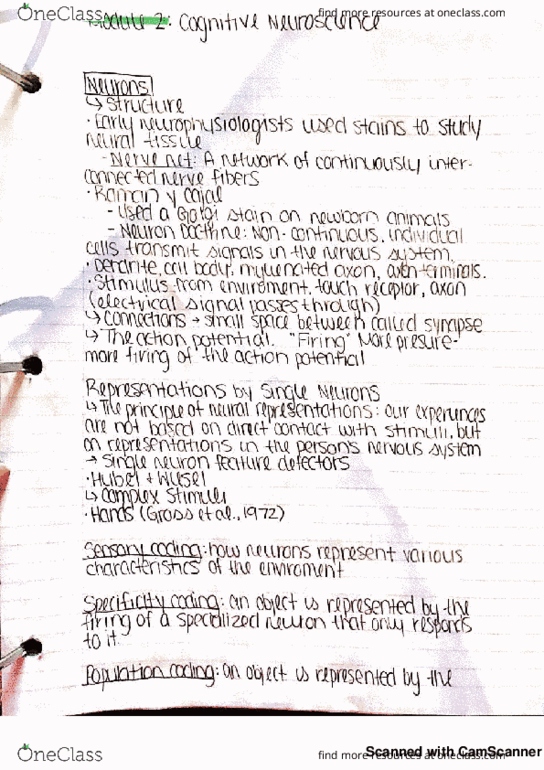 OneClass
find more resources at oneclass.com
Module 2: Cognitive Neuroscience
Neurons
↳ Structure
· Early neurophysiologists used stains to study
neural tissue
- Nerve net: A network of continuously inter-
connected nerve fibers
· Raman y Cajal
- Used a Golgi stain on newborn animals
- Neuron Doctrine: Non-continuous, individual
cells transmit signals in the nervous system.
· Dendrite, cell body, mylenated axon, axon terminals.
· Stimulus from enviroment, touch receptor, axon
(electrical signal passes through)
↳ Connections → small space between called synapse
↳ The action potential. "Firing" More presure-
more firing of the action potential
Representations by Single Neurons
↳ The principle of neural representations: our experiences
are not based on direct contact with stimuli, but
on representations in the persons nervous system
→ Single neuron feature detectors
· Hubel + Wiesel
↳ Complex Stimuli
· Hands (Gross et al., 1972)
Sensory coding: how neurons represent various
characteristics of the enviroment
Specificity coding: an object is represented by the
firing of a specialized neuron that only responds
to it.
Population coding: an object is represented by the
OneClass
find more resources at oneclass.com
Scanned with CamScanner